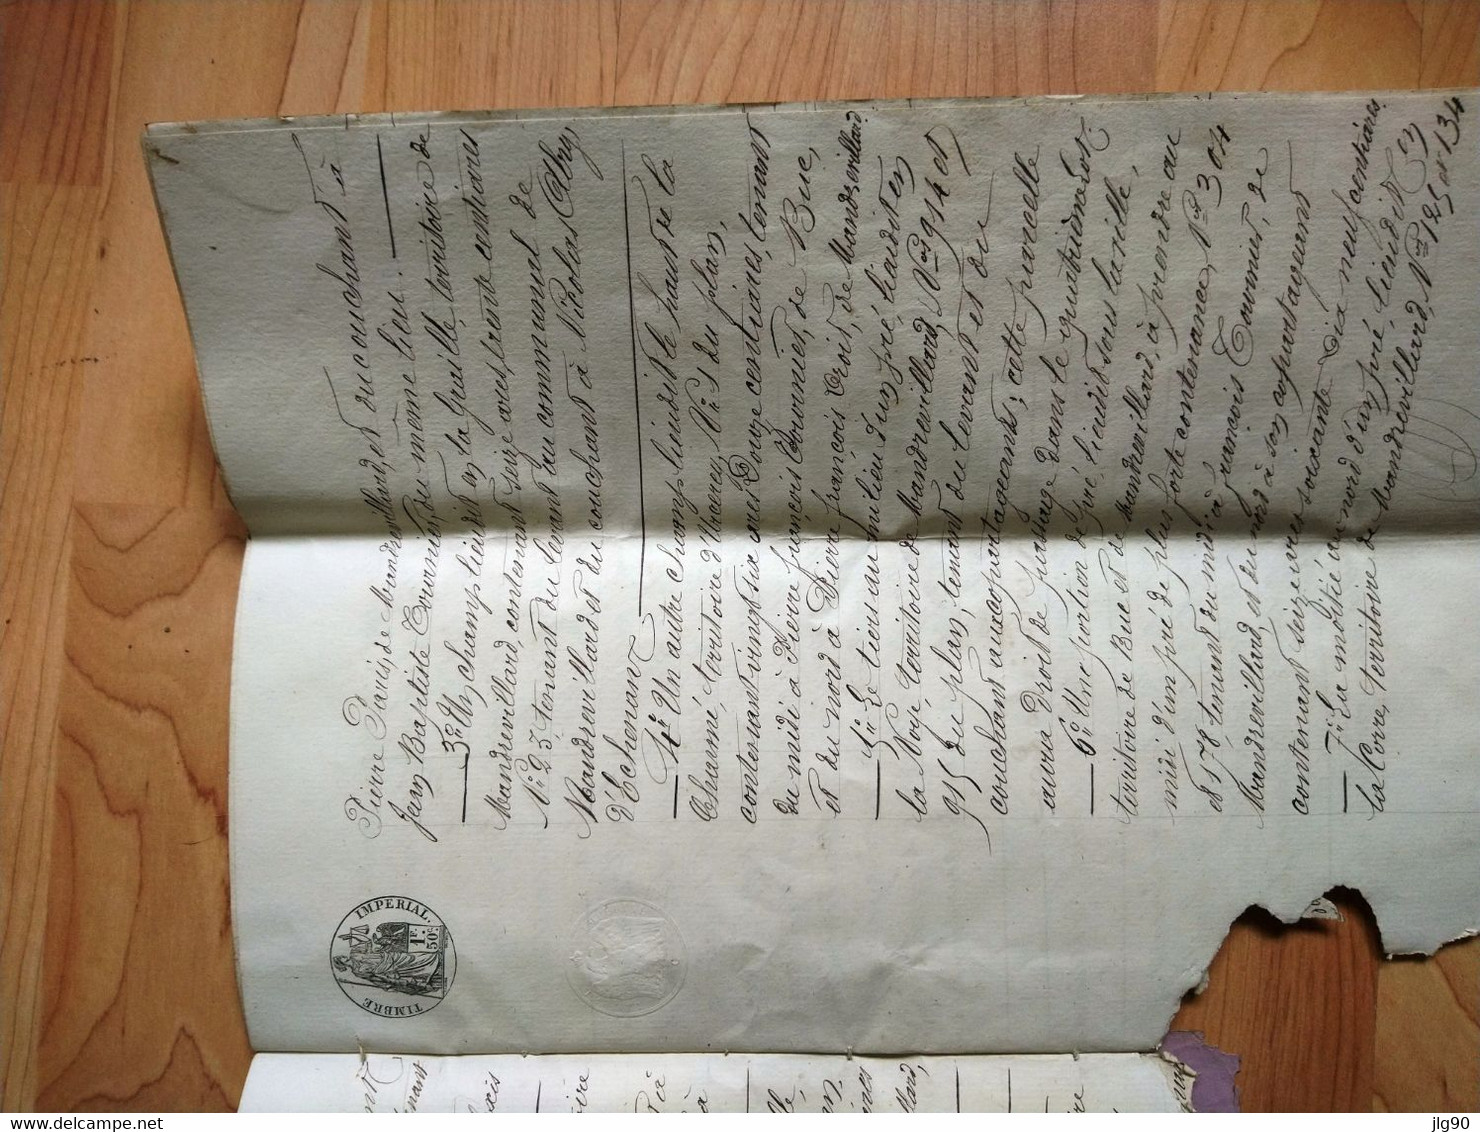 TIMBRE IMPERIAL.
1F. 50c.
Pierre Pavis, de Mandrevillard, et du couchant à
Jean Baptiste Tournier, du même lieu.
3º Un champ lieudit en la Gueille, territoire de
Mandrevillard, contenant seize ares, trente centiares
Nº 23 tenant du levant au communal de
Mandrevillard et du couchant à Nicolas Abry,
d'Échenans
4º Un autre champ lieudit le haut de la
territoire d' Nº 1 du plan,
contenant vingt six ares Douze centiares, tenant
du midi à Pierre françois Tournier, de Buc,
et du nord à Pierre françois Droit, de Mandrevillard.
5º Le tiers au milieu d'un pré, lieudit en
la Noie, territoire de Mandrevillard, Nos 914 et
915 du plan, tenant du levant et du
couchant aux copartageants; cette parcelle
aura droit de passage dans le quatrième lot.
6º Une portion de pré, lieudit sous la ville,
territoire de Buc et de Mandrevillard, à prendre au
midi d'un pré de plus forte contenance, Nos 304
et 578 tenant du midi à françois Tournier, de
Mandrevillard, et du nord à son copartageant
contenant seize ares soixante dix neuf centiares.
7º La moitié au nord d'un pré, lieudit en
la Corre, territoire de Mandrevillard, Nos 125 et 134
jlg90